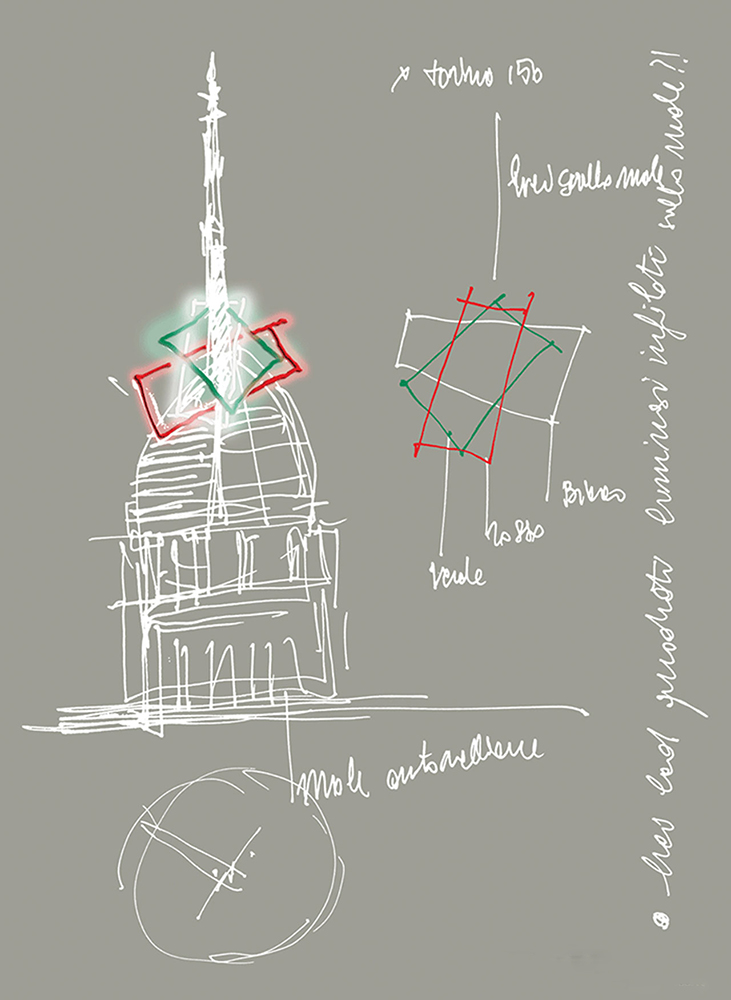 x torino 150
luci sulla mole
Bianco
rosso
verde
mole antonelliana
led quadrati luminosi infilati sulla mole?!